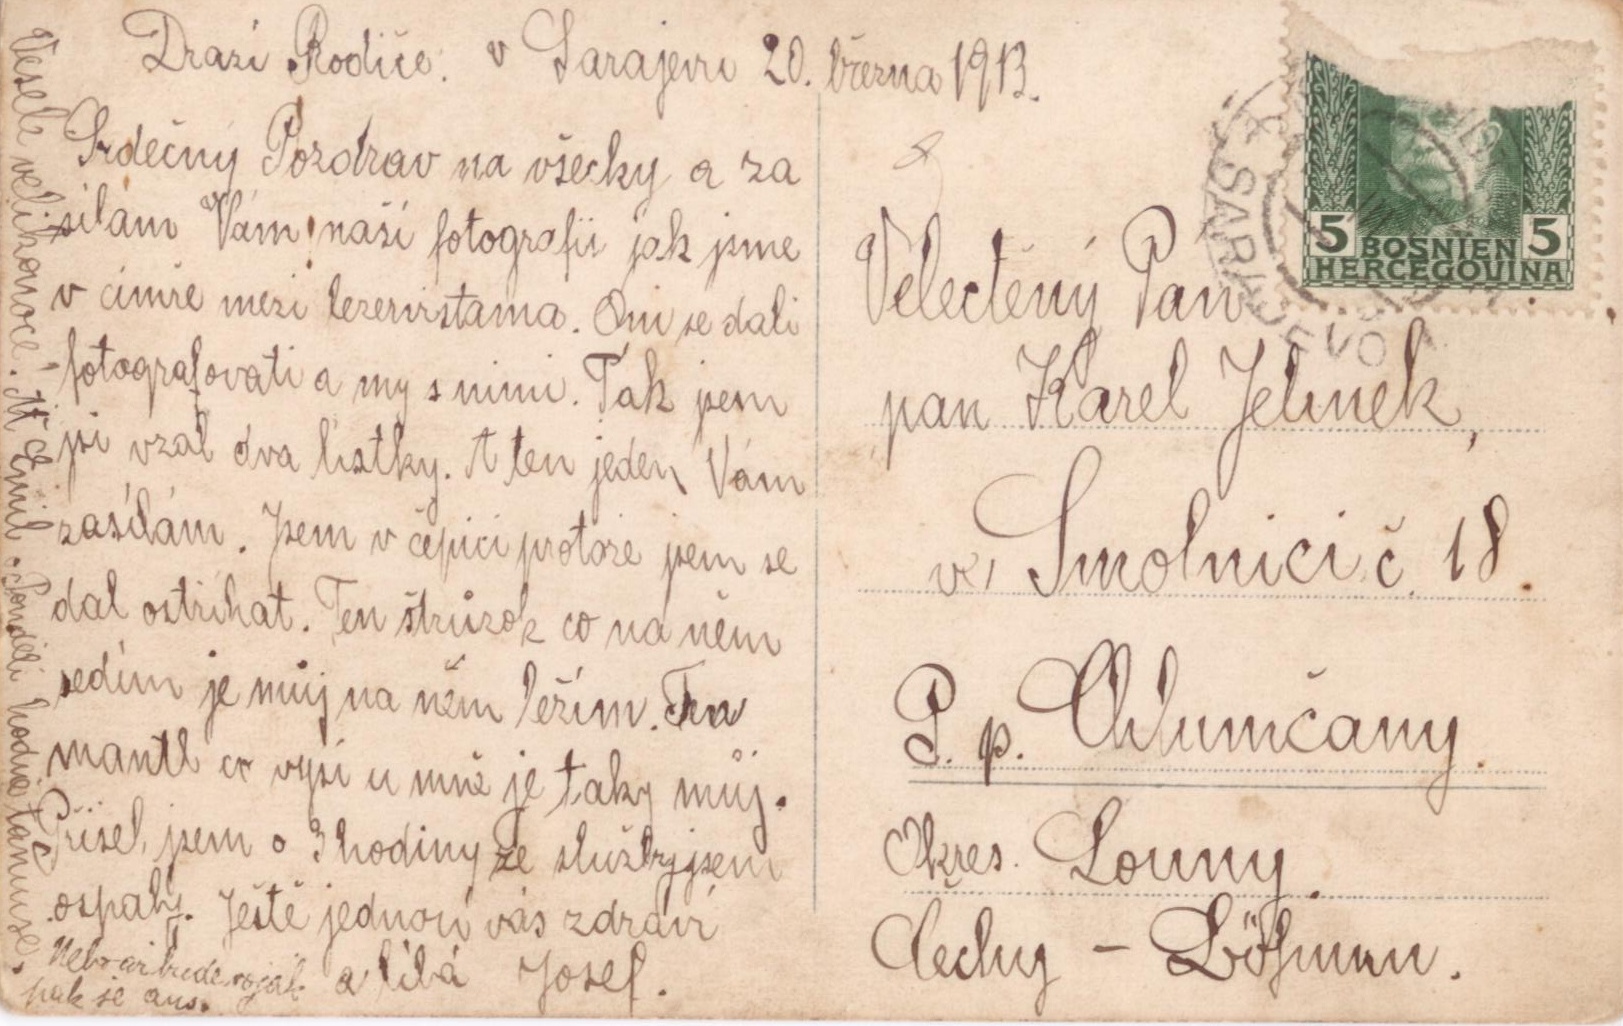 Drazí Rodiče. v Sarajevu 20. března 1913.
Srdečný Pozdrav na všecky a za
sílám Vám naší fotografii jak jsme
v cimře mezi lezervistama. Oni se dali
fotografovati a my s nimi. Tak jsem
jsi vzal dva lístky. A ten jeden Vám
zasílám. Jsem v čepici protoze jsem se
dal ostříhat. Ten štrůzok co na něm
sedím je můj na něm ležím. Ten
mantl co vysí u mně je taky můj.
Přišel jsem o 3 hodiny ze služby jsem
ospalý. Ještě jednou vás zdraví
a líbá Josef.
Veselé velikonoce.
pak se
Velectěný Pan
pan Karel Jelínek,
v Smolnici č. 18.
P. p. Chlumčany.
Okres. Louny.
Čechy - Böhmen.
5 BOSNIEN 5
HERCEGOVINA
SARAJEVO